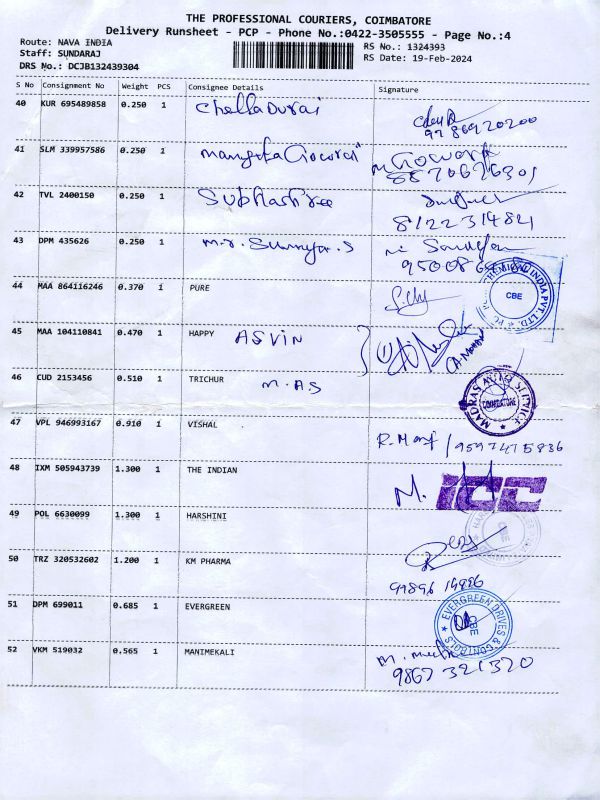 THE PROFESSIONAL COURIERS, COIMBATORE
Delivery Runsheet - PCP - Phone No.:0422-3505555 - Page No.:4
Route: NAVA INDIA
RS No.: 1324393
Staff: SUNDARAJ
RS Date: 19-Feb-2024
DRS No.: DCJB132439304
S No Consignment No Weight PCS Consignee Details Signature
40 KUR 695489858 0.250 1 Chella Durai
9786920200
41 SLM 339957586 0.250 1
8870676301
42 TVL 2400150 0.250 1 Subhashree
8122314821
43 DPM 435626 0.250 1
44 MAA 864116246 0.370 1 PURE
CBE
45 MAA 104110841 0.470 1 HAPPY ASVIN
46 CUD 2153456 0.510 1 TRICHUR M.AS
MADRAS AUTO SERVICE
COIMBATORE
47 VPL 946993167 0.910 1 VISHAL
R. Mani / 9597475836
48 IXM 505943739 1.300 1 THE INDIAN
M. ICC
49 POL 6630099 1.300 1 HARSHINI
50 TRZ 320532602 1.200 1 KM PHARMA
51 DPM 699011 0.685 1 EVERGREEN
EVERGREEN DRIVES & CONTROLS
CBE
52 VKM 519032 0.565 1 MANIMEKALI
9867321320